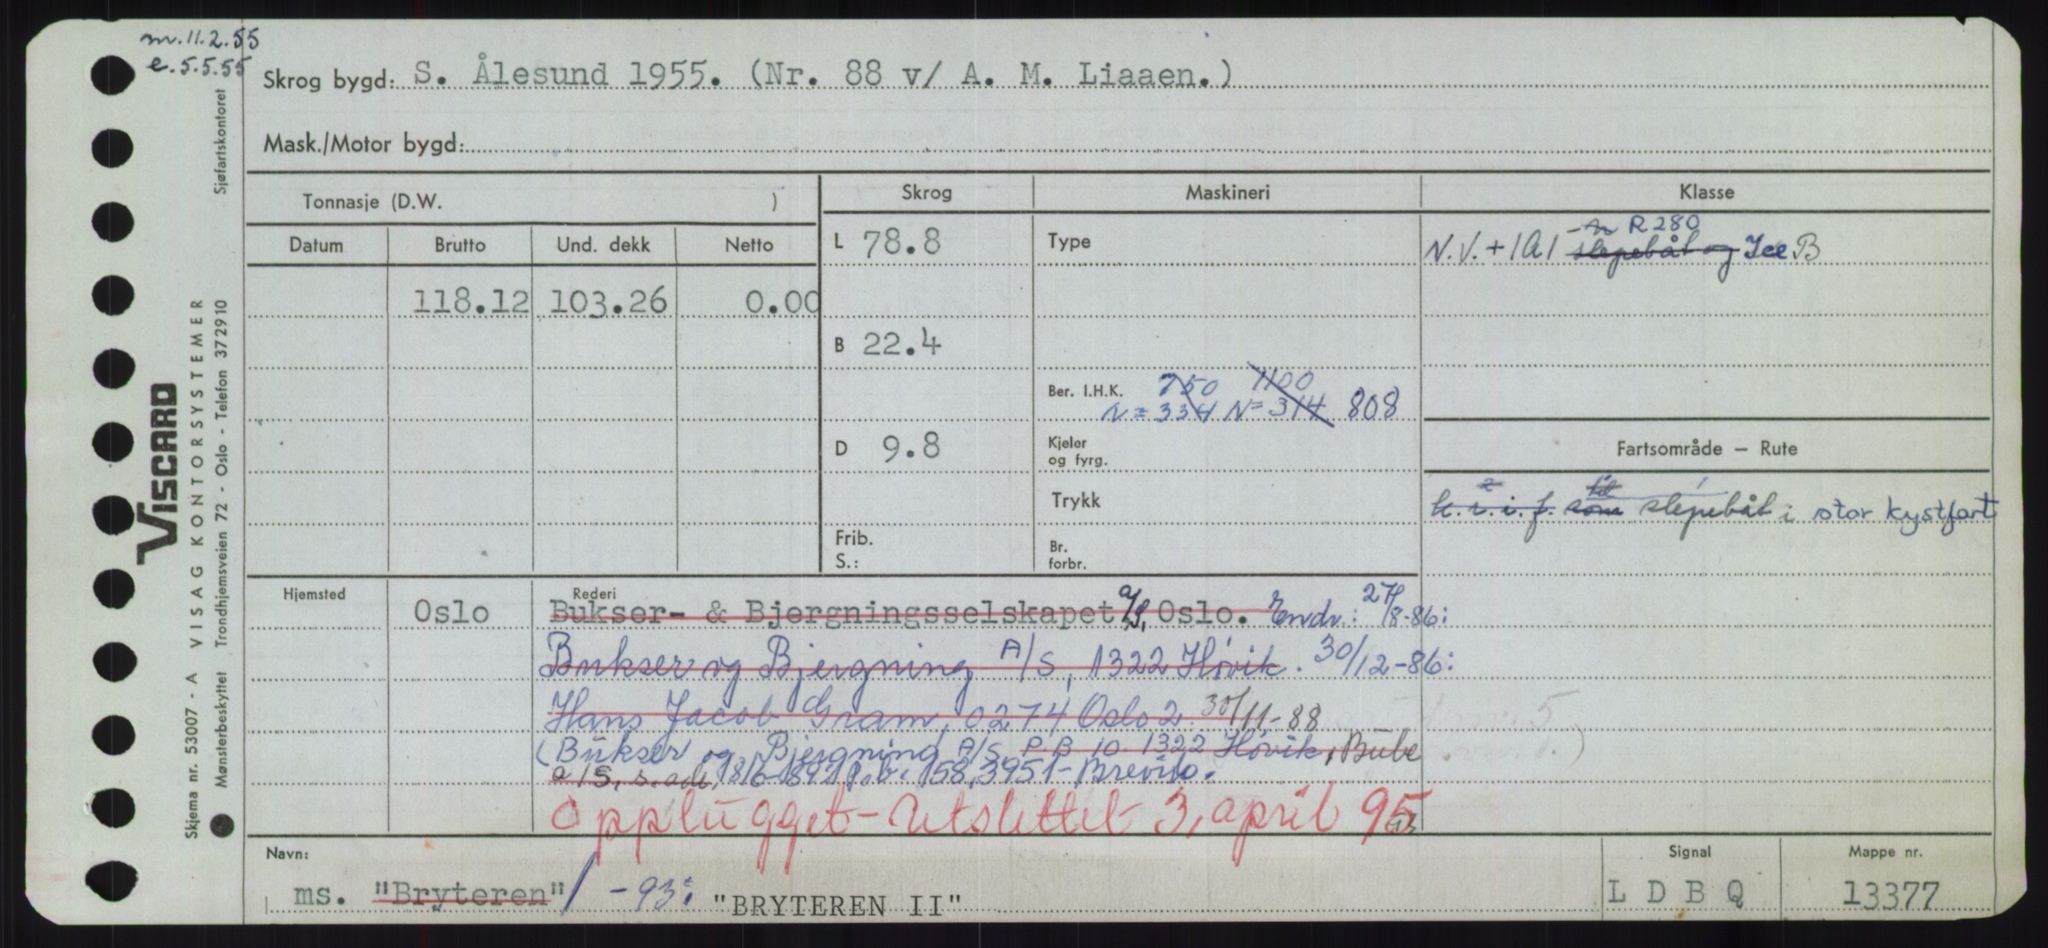 m. 11.2.55
e. 5.5.55
Skrog bygd: S. Ålesund 1955. (Nr. 88 v/ A. M. Liaaen.)
Mask./Motor bygd:
Tonnasje (D.W. )
Skrog
Maskineri
Klasse
Datum Brutto Und. dekk Netto
L 78.8
Type
R 280
N.V. + 1A1 slepebåt og Ice B
118.12 103.26 0.00
B 22.4
Ber. I.H.K. 750 1100
N = 334 N = 314 808
D 9.8
Kjeler
og fyrg.
Fartsområde — Rute
Trykk
k. i. i. f. som slepebåt i stor kystfart
Frib.
S.:
Br.
forbr.
Hjemsted
Rederi
Oslo Bukser- & Bjergningsselskapet A/S, Oslo. Endr.: 27/8-86:
Bukser og Bjergning A/S, 1322 Høvik. 30/12-86:
Hans Jacob Gram, 0274 Oslo 2. 30/11-88
(Bukser og Bjergning A/S P B 10 1322 Høvik, Bube
a/S, s. adr, 18/6-89: P.b. 158, 3951 Brevik.
Opphugget - Utslettet 3, april 95
Navn:
Signal
Mappe nr.
ms. "Bryteren" / -93: "BRYTEREN II"
L D B Q
13377
VISCARD
Skjema nr. 53007 - A VISAG KONTORSYSTEMER
Mønsterbeskyttet Trondhjemsveien 72 - Oslo - Telefon 372910 Sjøfartskontoret